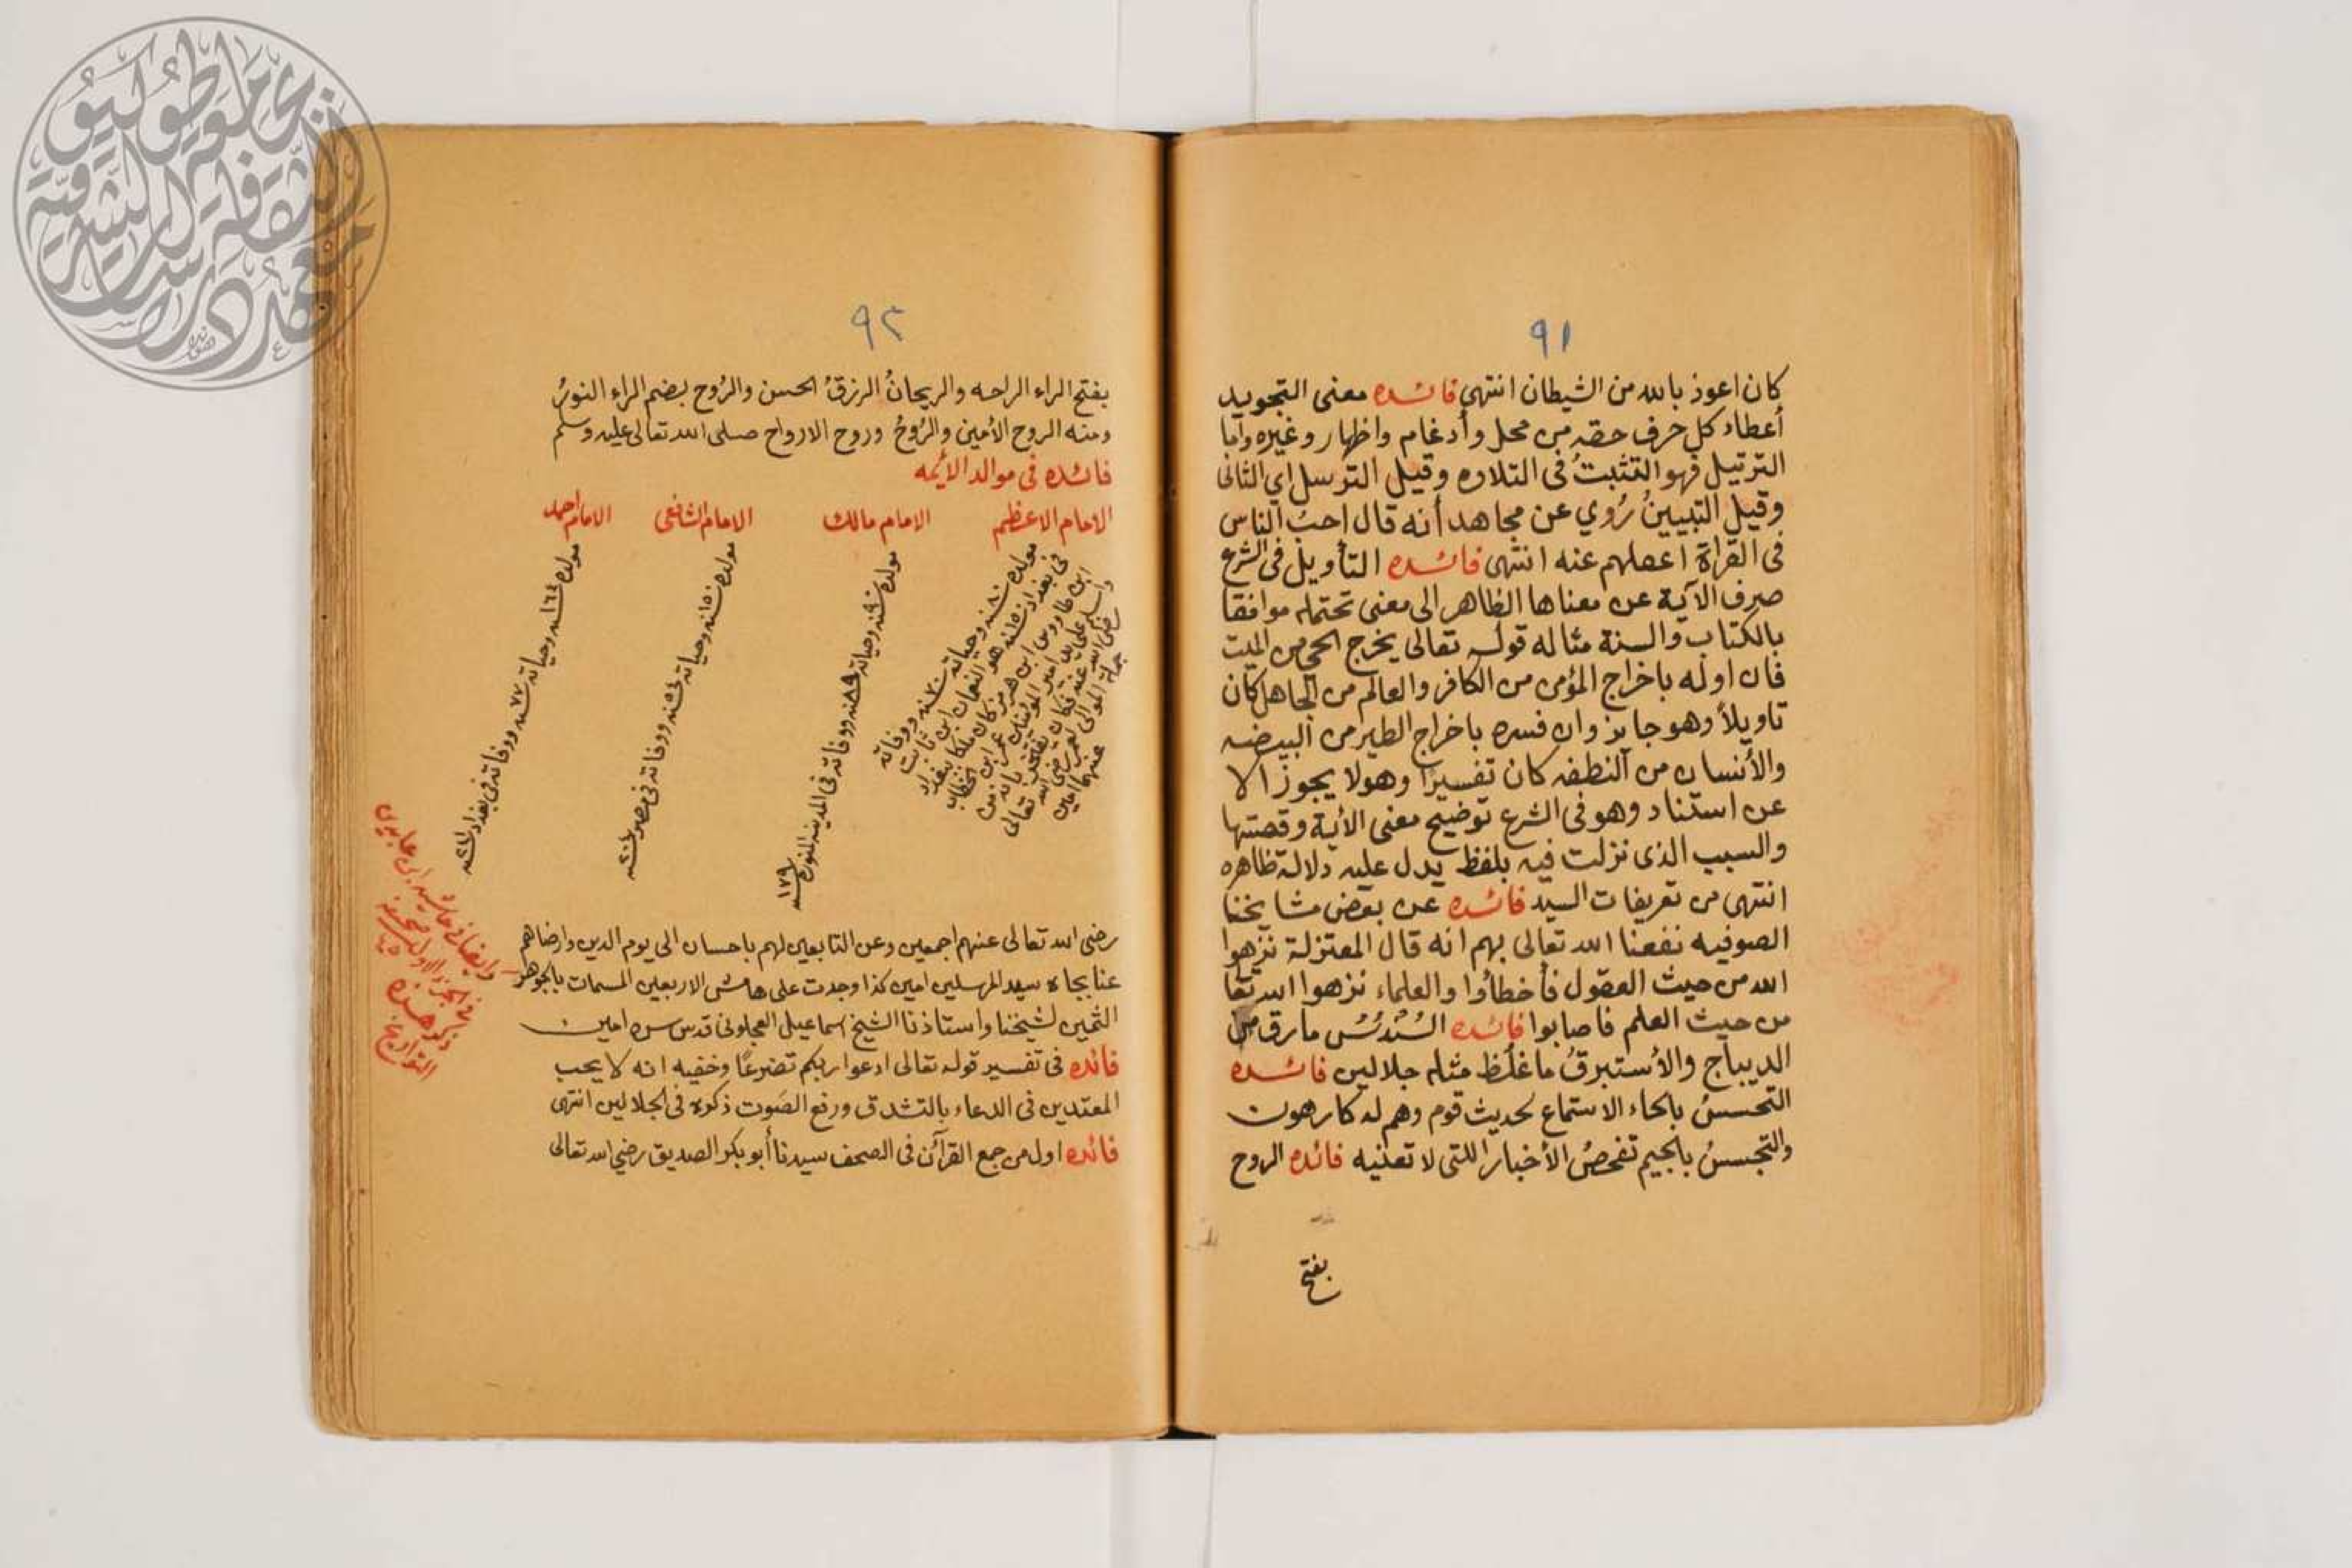 ٩١
كان اعوذ بالله من الشيطان انتهى فائده معنى التجويد
أعطاء كل حرف حقه من محل وأدغام واظهار وغيره واما
الترتيل فهو التثبتُ فى التلاوه وقيل الترسل اي الثانى
وقيل التبيينُ رُوي عن مجاهد أنه قال احبُ الناس
فى القرأة اعملهم عنه انتهى فائده التأويل فى الشرع
صرف الآية عن معناها الظاهر الى معنى تحتمله موافقا
بالكتاب والسنة مثاله قوله تعالى يخرج الحي من الميت
فان اوله باخراج المؤمن من الكافر والعالم من الجاهل كان
تاويلاً وهو جايز وان فسره باخراج الطير من البيضه
والأنسان من النطفه كان تفسيرًا وهو لا يجوز الا
عن استناد وهو فى الشرع توضيح معنى الأية وقصتها
والسبب الذى نزلت فيه بلفظ يدل عليه دلالة ظاهره
انتهى من تعريفات السيد فائده عن بعض مشايخنا
الصوفيه نفعنا الله تعالى بهم انه قال المعتزلة نزهوا
الله من حيث العقول فأخطاؤا والعلماء نزهوا الله تعا
من حيث العلم فاصابوا فائده السُندُسُ مارق من
الديباج والأستبرقُ ما غلُظ مثله جلالين فائده
التحسسُ بالحاء الاستماع لحديث قوم وهم له كارهون
والتجسسُ بالجيم تفحصُ الأخبار اللتى لا تعنيه فائده الروح
بفتح
٩٢
بفتح الراء الراحه والريحانُ الرزقُ الحسن والرُوح بضم الراء النورُ
ومنه الروح الأمين والرُوحُ وروح الارواح صلى الله تعالى عليه وسلم
فائده فى موالد الأئمه
الامام الاعظم
الامام مالك
الامام الشافعى
الامام احمد
مولده سنه ٨٠ وحياته سنه ٧٠ ووفاته
فى بغداد سنه ١٥٠ هو النعمان ابن ثابت
ابن طاووس ابن هرمز كان ملكا ببغداد
واسلم على يد امير المؤمنين عمر ابن الخطاب
رضى الله عنه فكان يفتخر بانه من
جملة الموالى لعمر رضى الله تعالى
عنهما امين
مولده سنه ٩٠ وحياته سنه ٨٩ ووفاته فى المدينه المنوره سنه ١٧٩
مولده سنه ١٥٠ وحياته سنه ٥٤ ووفاته فى مصر سنه ٢٠٤
مولده سنه ١٦٤ وحياته سنه ٧٧ ووفاته فى بغداد سنه ٢٤١
رضى الله تعالى عنهم اجمعين وعن التابعين لهم باحسان الى يوم الدين وارضاهم
عنا بجاه سيد المرسلين امين كذا وجدت على هامش الاربعين المسمات بالجوهر
الثمين لشيخنا واستاذنا الشيخ اسماعيل العجلونى قدس سره امين
فائده فى تفسير قوله تعالى ادعوا ربكم تضرعًا وخفيه انه لا يحب
المعتدين فى الدعاء بالتشدق ورفع الصَوت ذكره فى الجلالين انتهى
فائده اول من جمع القرآن فى الصحف سيدنا أبو بكر الصديق رضي الله تعالى
وايضا فى حاشيه ابن عابدين
فى الجزء الاول صحيفه
ذكر هذه
التواريخ